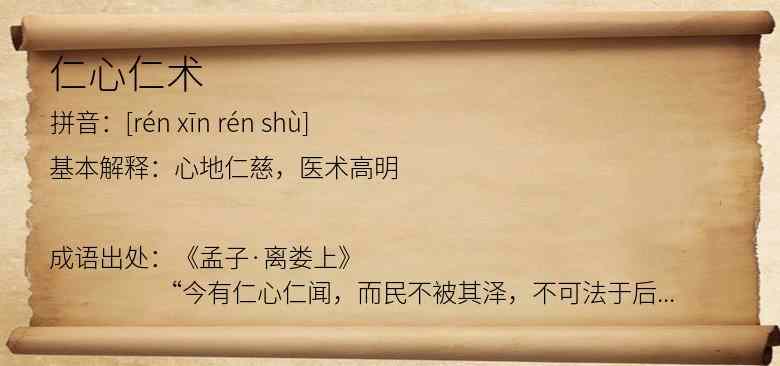 仁心仁术
拼音：[rén xīn rén shù]
基本解释：心地仁慈，医术高明
成语出处：《孟子·离娄上》
“今有仁心仁闻，而民不被其泽，不可法于后...